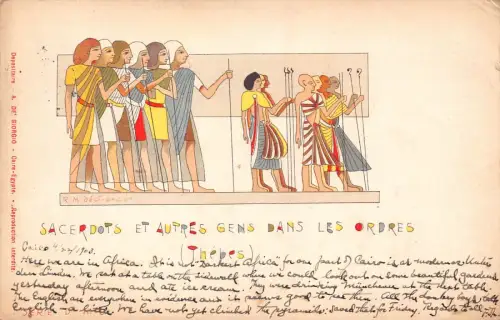 Dépositaire - A. DE' GIORGIO - Caire-Egypte. - Reproduction interdite.
SACERDOTS ET AUTRES GENS DANS LES ORDRES
(Thèbes)
Cairo
Here we are in Africa. It is not "darkest Africa" from our part of Cairo is as modern as Paris
and London. We sat at a table on the sidewalk where we could look out on some beautiful gardens
yesterday afternoon and ate ice cream. They were drinking at the next table.
The English are everywhere in evidence and it seems good to see them. All the donkey boys talk
English - a little. We have not yet climbed the pyramids. Saved that for Friday. Regards to all